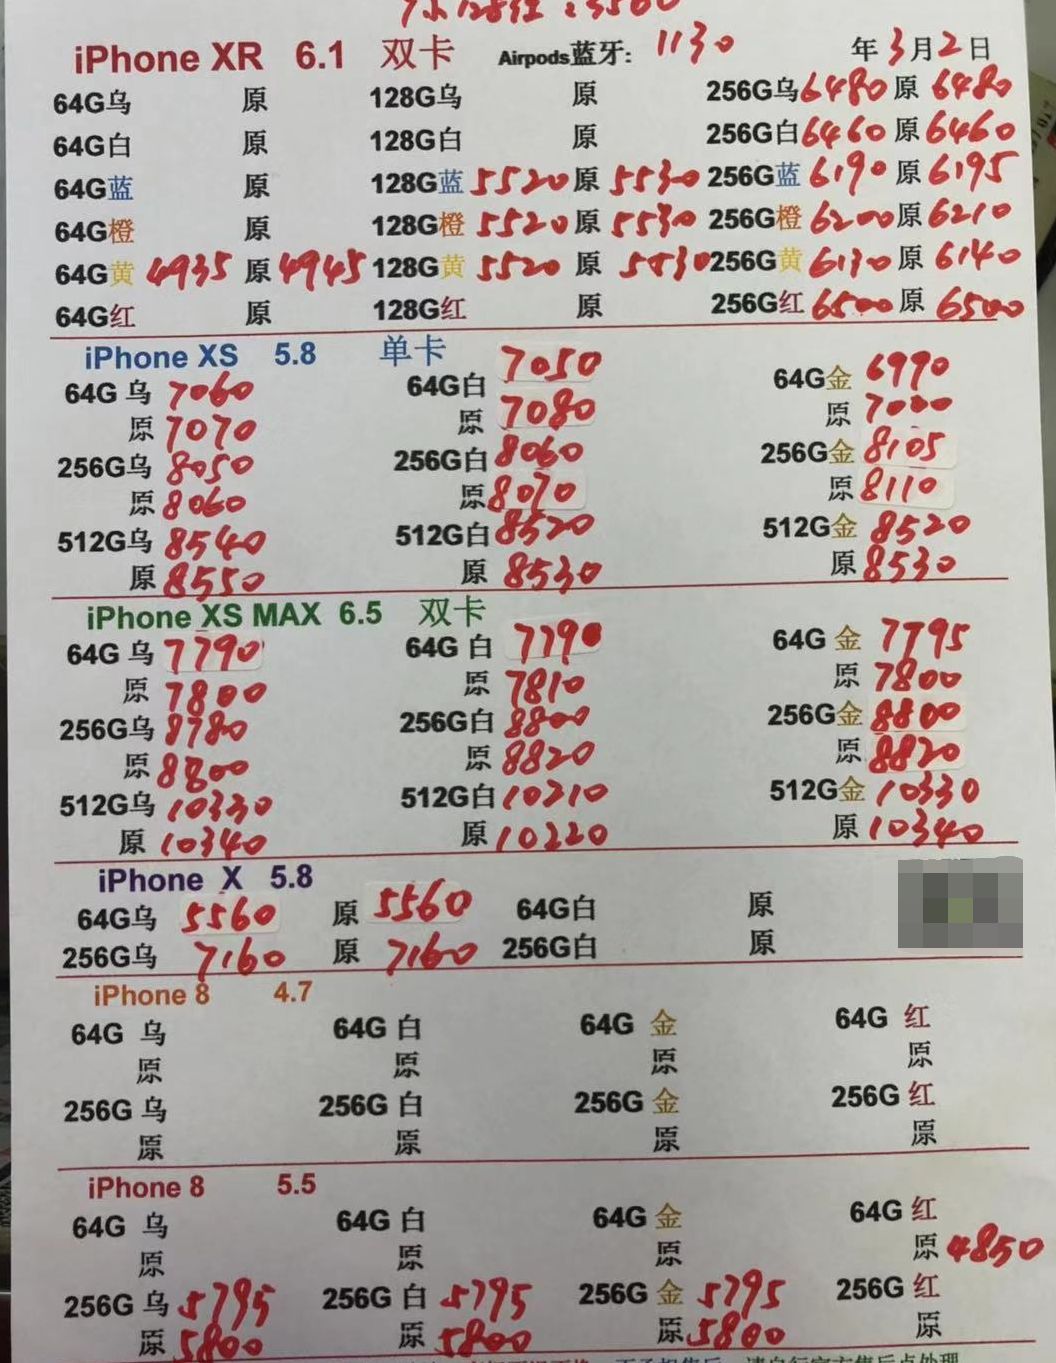 iPhone XR 6.1 双卡 Airpods蓝牙: 1130 年3月2日
64G乌 原 128G乌 原 256G乌6480 原 6480
64G白 原 128G白 原 256G白6460 原6460
64G蓝 原 128G蓝 5520原 5530 256G蓝 6190 原6195
64G橙 原 128G橙 5520原 5530 256G橙 6200原6210
64G黄 4935 原4945 128G黄 5520 原 5530 256G黄 6130 原 6140
64G红 原 128G红 原 256G红 6500原 6500
iPhone XS 5.8 单卡
64G 乌 7060 64G白 7050 64G金 6990
原 7070 原 7080 原 7000
256G乌 8050 256G白 8060 256G金 8105
原 8060 原 8070 原 8110
512G乌 8540 512G白 8520 512G金 8520
原 8550 原 8530 原 8530
iPhone XS MAX 6.5 双卡
64G 乌 7790 64G 白 7790 64G 金 7795
原 7800 原 7810 原 7800
256G乌 8780 256G白 8800 256G金 8800
原 8800 原 8820 原 8820
512G乌 10330 512G白 10210 512G金 10330
原 10340 原 10220 原 10340
iPhone X 5.8
64G乌 5560 原 5560 64G白 原
256G乌 7160 原 7160 256G白 原
iPhone 8 4.7
64G 乌 64G 白 64G 金 64G 红
原 原 原 原
256G 乌 256G 白 256G 金 256G 红
原 原 原 原
iPhone 8 5.5
64G 乌 64G 白 64G 金 64G 红
原 原 原 原 4850
256G 乌 5795 256G 白 5795 256G 金 5795 256G 红
原 5800 原 5800 原 5800 原